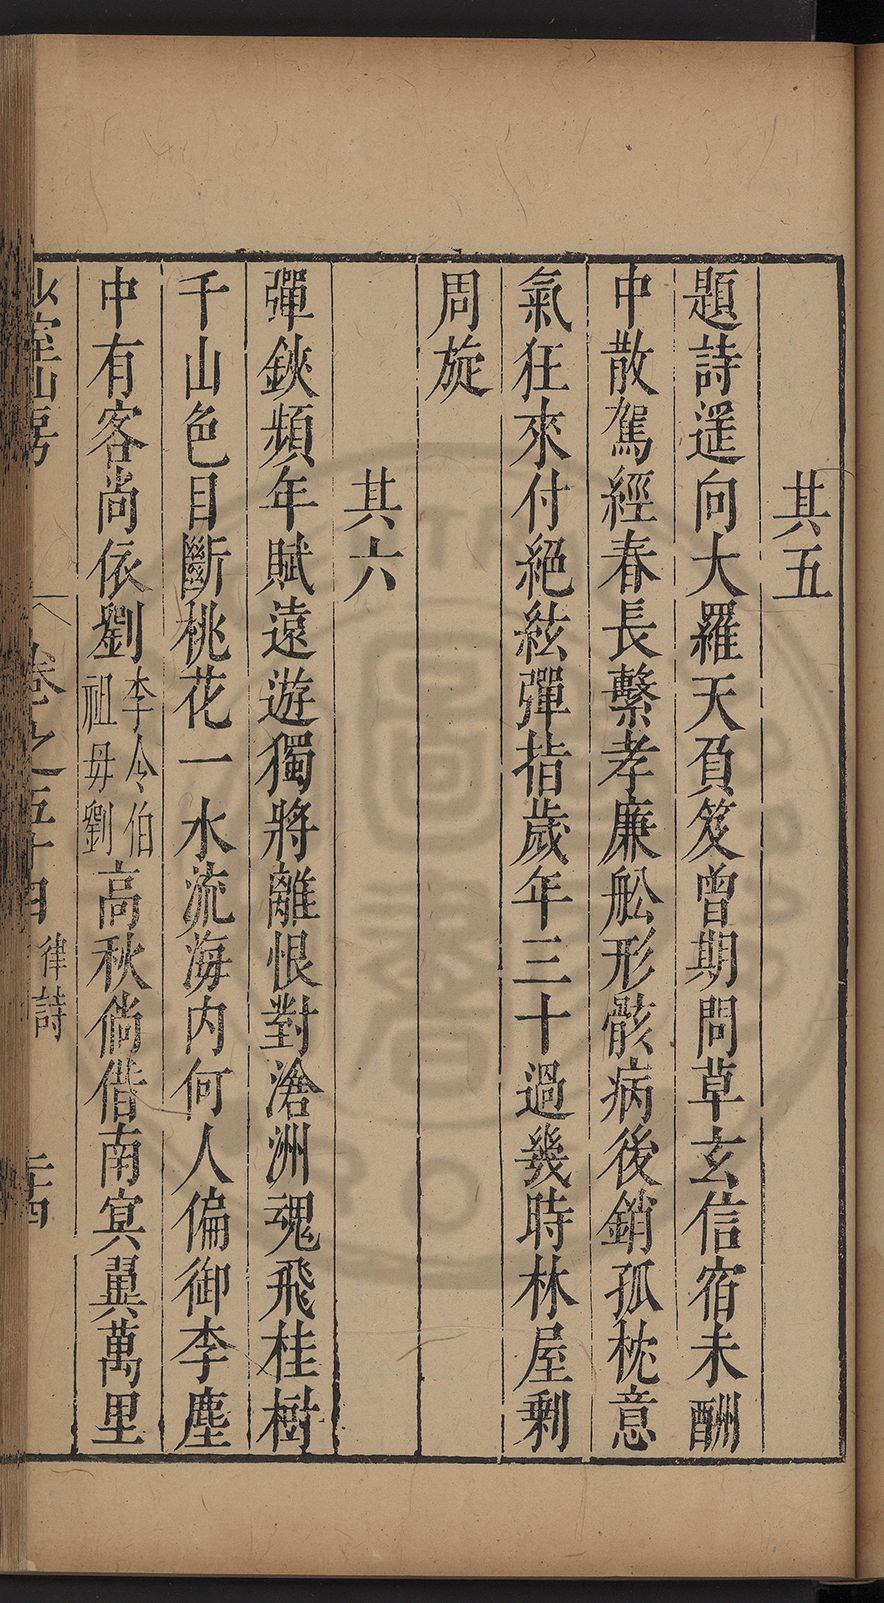 其五
題詩遥向大羅天負笈曾期問草玄信宿未酬
中散駕經春長繫孝廉舩形骸病後銷孤枕意
氣狂來付絕絃彈指歲年三十過幾時林屋剩
周旋
其六
彈鋏頻年賦遠遊獨將離恨對滄洲魂飛桂樹
千山色目斷桃花一水流海内何人偏御李塵
中有客尚依劉李令伯祖母劉高秋倘借南㝠翼萬里
少室山房 卷之五十四 律詩